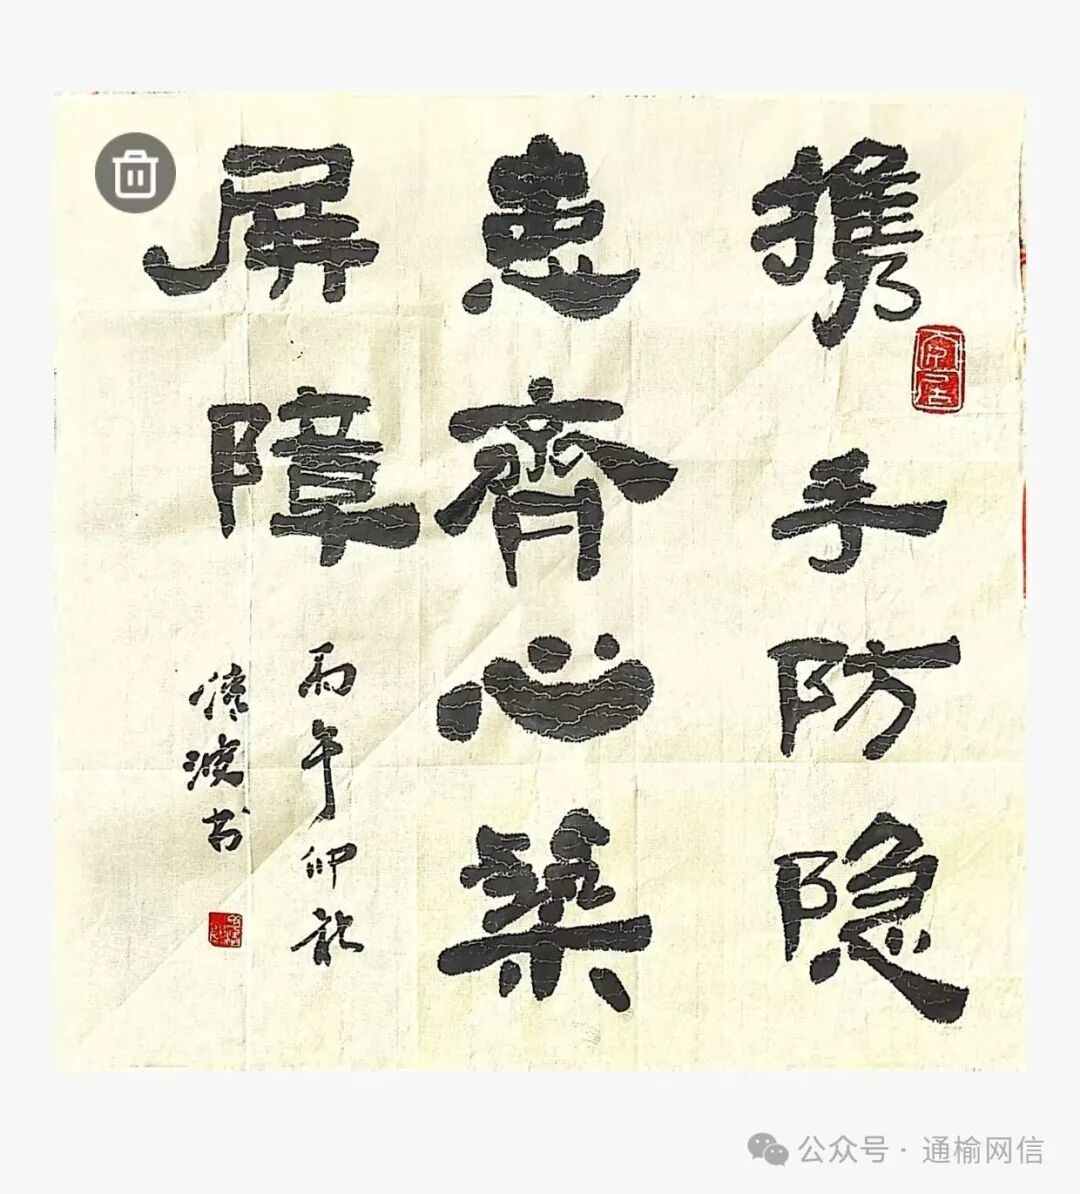 携手防隐
患齐心築
屏障
丙午仲秋
书
公众号·通榆网信